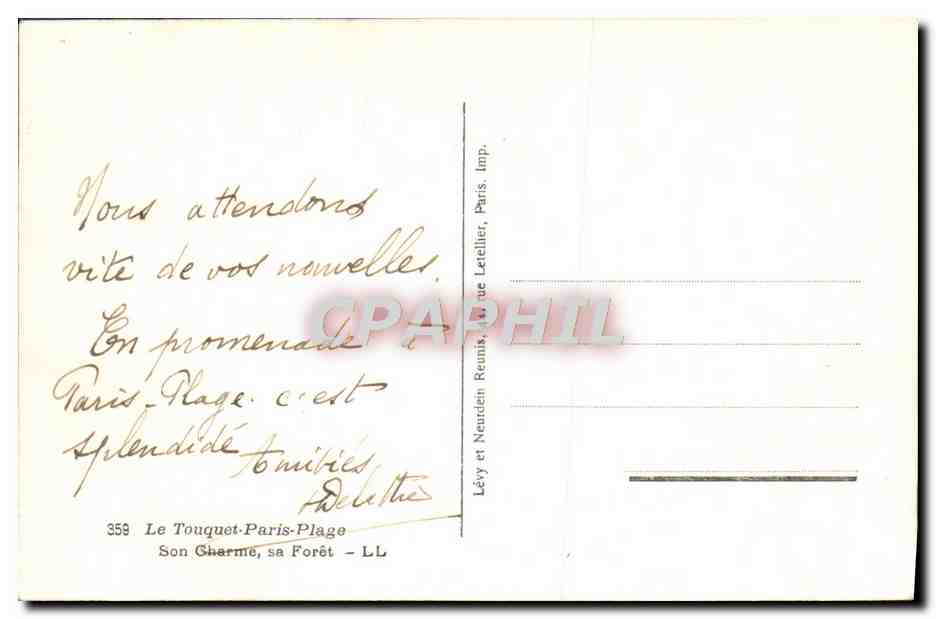 Nous attendons
vite de vos nouvelles.
En promenade à
Paris-Plage. c'est
splendide
Amitiés
359 Le Touquet-Paris-Plage
Son Charme, sa Forêt - LL
Lévy et Neurdein Reunis, rue Letellier, Paris. Imp.
CPAPHIL